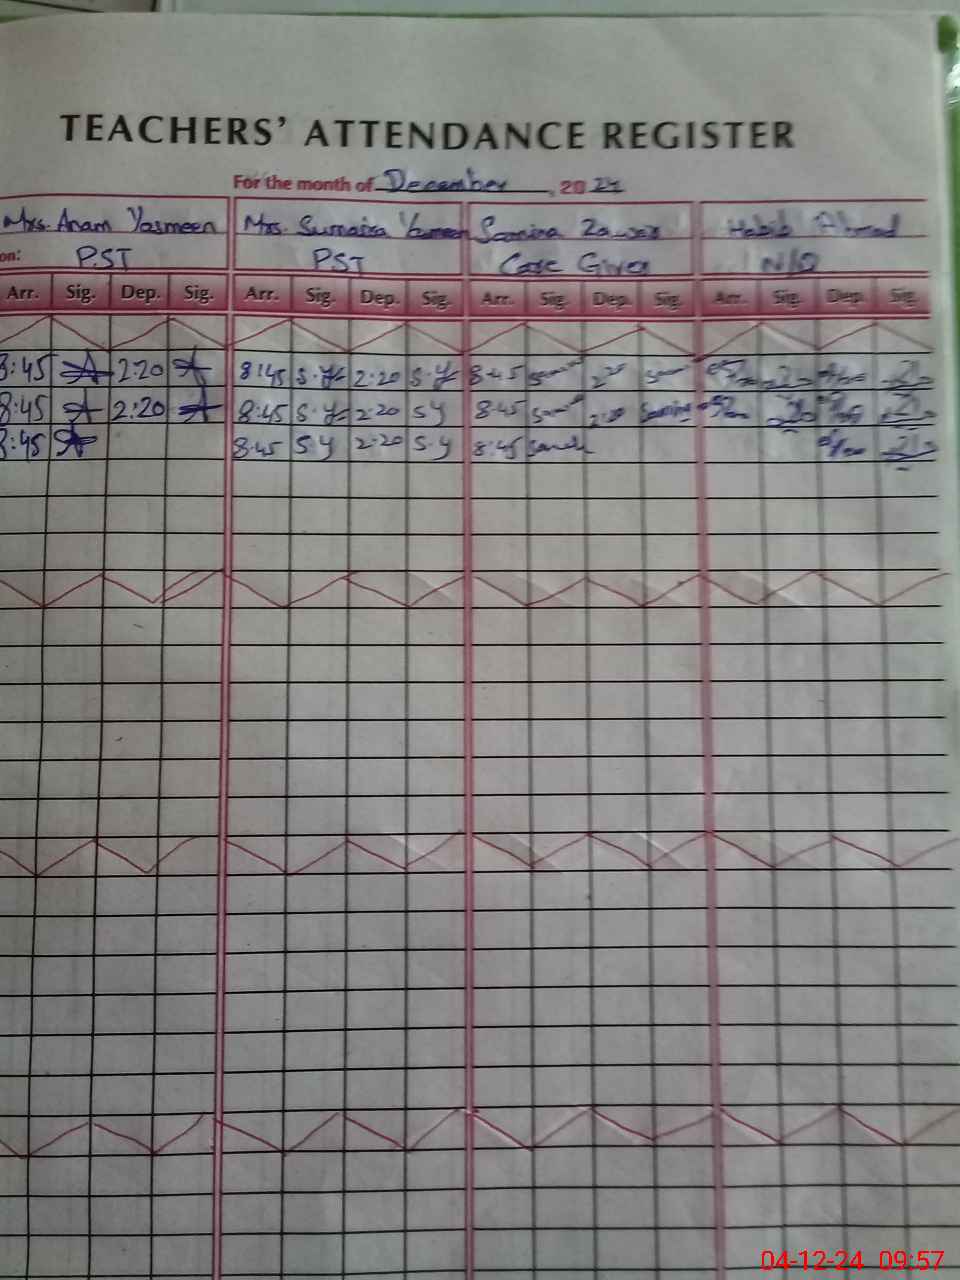 TEACHERS' ATTENDANCE REGISTER
For the month of December, 2024
Mrs. Anam Yasmeen Mrs. Sumaira Yasmeen Samina Habib Ahmad
on: PST PST Care Giver N/Q
Arr. Sig. Dep. Sig. Arr. Sig. Dep. Sig. Arr. Sig. Dep. Sig. Arr. Sig. Dep. Sig.
8:45 2:20 8:45 S.Y 2:20 S.Y 8:45
8:45 2:20 8:45 S.Y 2:20 SY 8:45 2:20 Samina
8:45 8:45 S.Y 2:20 S.Y 8:45
04-12-24 09:57